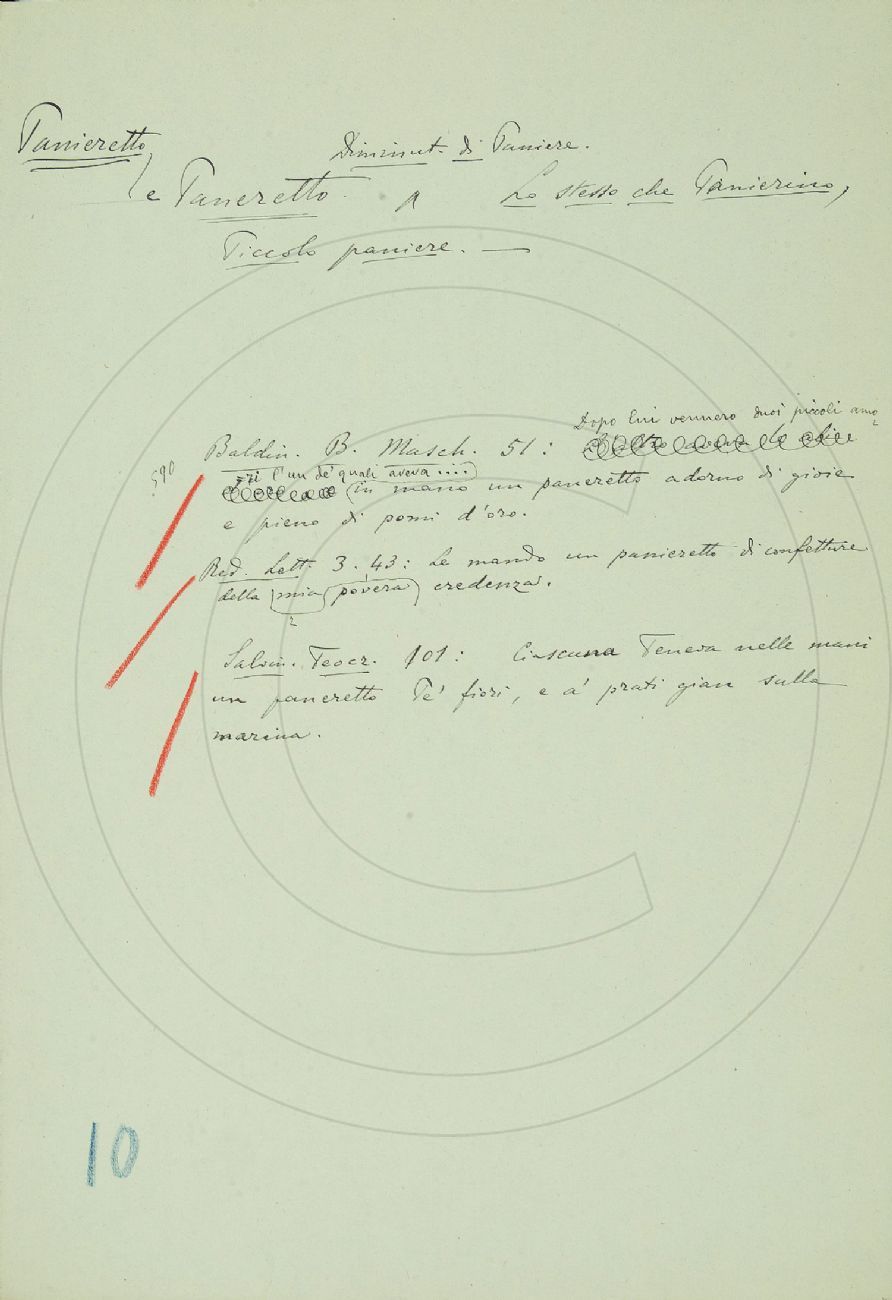 Panieretto
Diminut. di Paniere.
e Paneretto. Lo stesso che Panierino,
Piccolo paniere. —
Dopo lui vennero duoi piccoli amo
Baldin. B. Masch. 51:
590
ri l'un de' quali aveva....
in mano un paneretto adorno di gioie
e pieno di pomi d'oro.
Red. Lett. 3. 43: Le mando un panieretto di confetture
della mia povera credenza.
2
Salvin. Teocr. 101: Ciascuna Teneva nelle mani
un paneretto Pe' fiori, e a' prati gian sulla
marina.
10